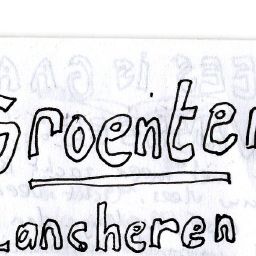 Groenten
Lancheren